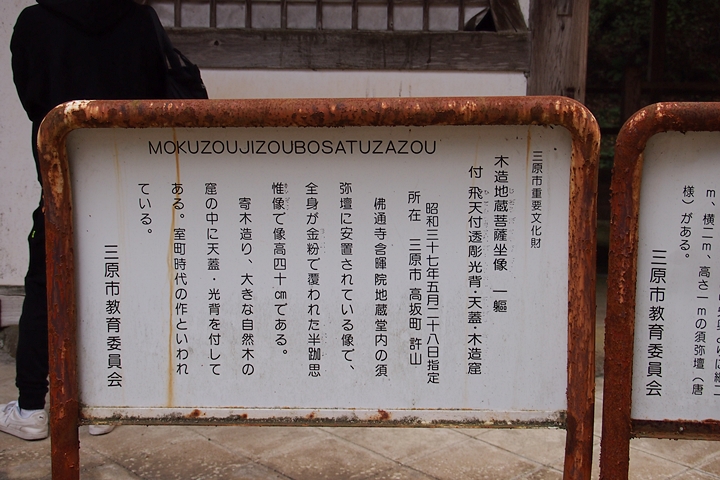 MOKUZOUJIZOUBOSATUZAZOU
三原市重要文化財
木造地蔵菩薩坐像 一軀
付 飛天付透彫光背・天蓋・木造窟
昭和三十七年五月二十八日指定
所在 三原市 高坂町 許山
佛通寺含暉院地蔵堂内の須
弥壇に安置されている像で、
全身が金粉で覆われた半跏思
惟像で像高四十㎝である。
寄木造り、大きな自然木の
窟の中に天蓋・光背を付して
ある。室町時代の作といわれ
ている。
三原市教育委員会
m、横二m、高さ一mの須弥壇（唐
様）がある。
三原市教育委員会